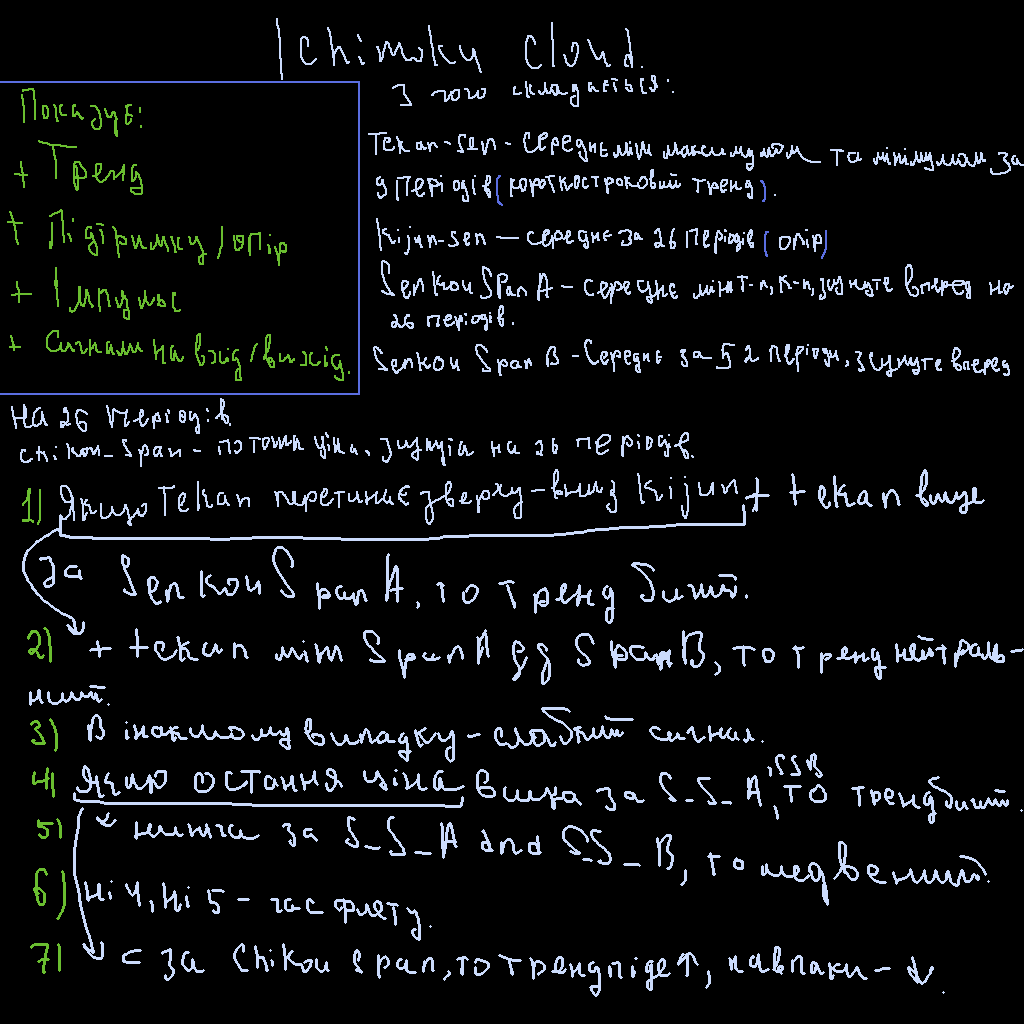 Ichimoku cloud.
З чого складається:
Показує:
+ Тренд
+ Підтримку/опір
+ Імпульс
+ Сигнали на вхід/вихід.
Tekan-sen - середнє між максимумом та мінімумом за
9 періодів (короткостроковий тренд).
Kijun-sen — середнє за 26 періодів (опір)
Senkou Span A - середнє між T-n, K-n, зсунуте вперед на
26 періодів.
Senkou Span B - Середнє за 52 періоди, зсунуте вперед
на 26 періодів.
Chikou-Span - поточна ціна, зсунута на 26 періодів.
1) Якщо Tekan перетинає зверху-вниз Kijun + tekan вище
за Senkou Span A, то тренд бичий.
2) + tekan між Span A до Span B, то тренд нейтраль-
ний.
3) В інакшому випадку - слабкий сигнал.
4) Якщо остання ціна вища за S_S_A, SSB, то тренд бичий.
5) нижча за S_S_A and S_S_B, то медвежий.
6) Ні 4, ні 5 - час флету.
7) < за Chikou span, то тренд піде ↑, навпаки - ↓.